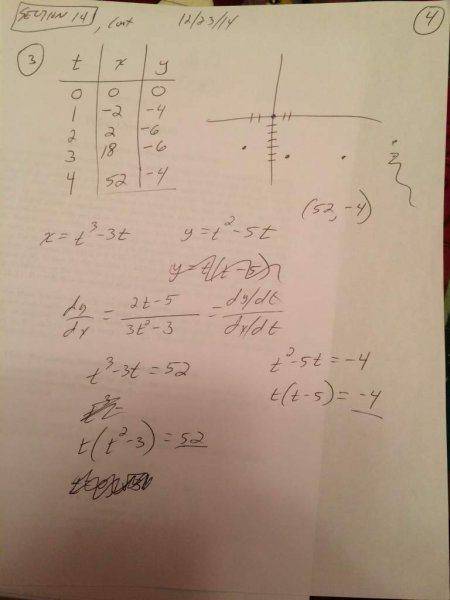 SECTION 14, cont 12/23/14 4
3
t x y
0 0 0
1 -2 -4
2 2 -6
3 18 -6
4 52 -4
(52, -4)
x = t³-3t y = t²-5t
dy/dx = 2t-5/3t²-3 = dy/dt/dx/dt
t³-3t = 52 t²-5t = -4
t(t-5) = -4
t(t²-3) = 52